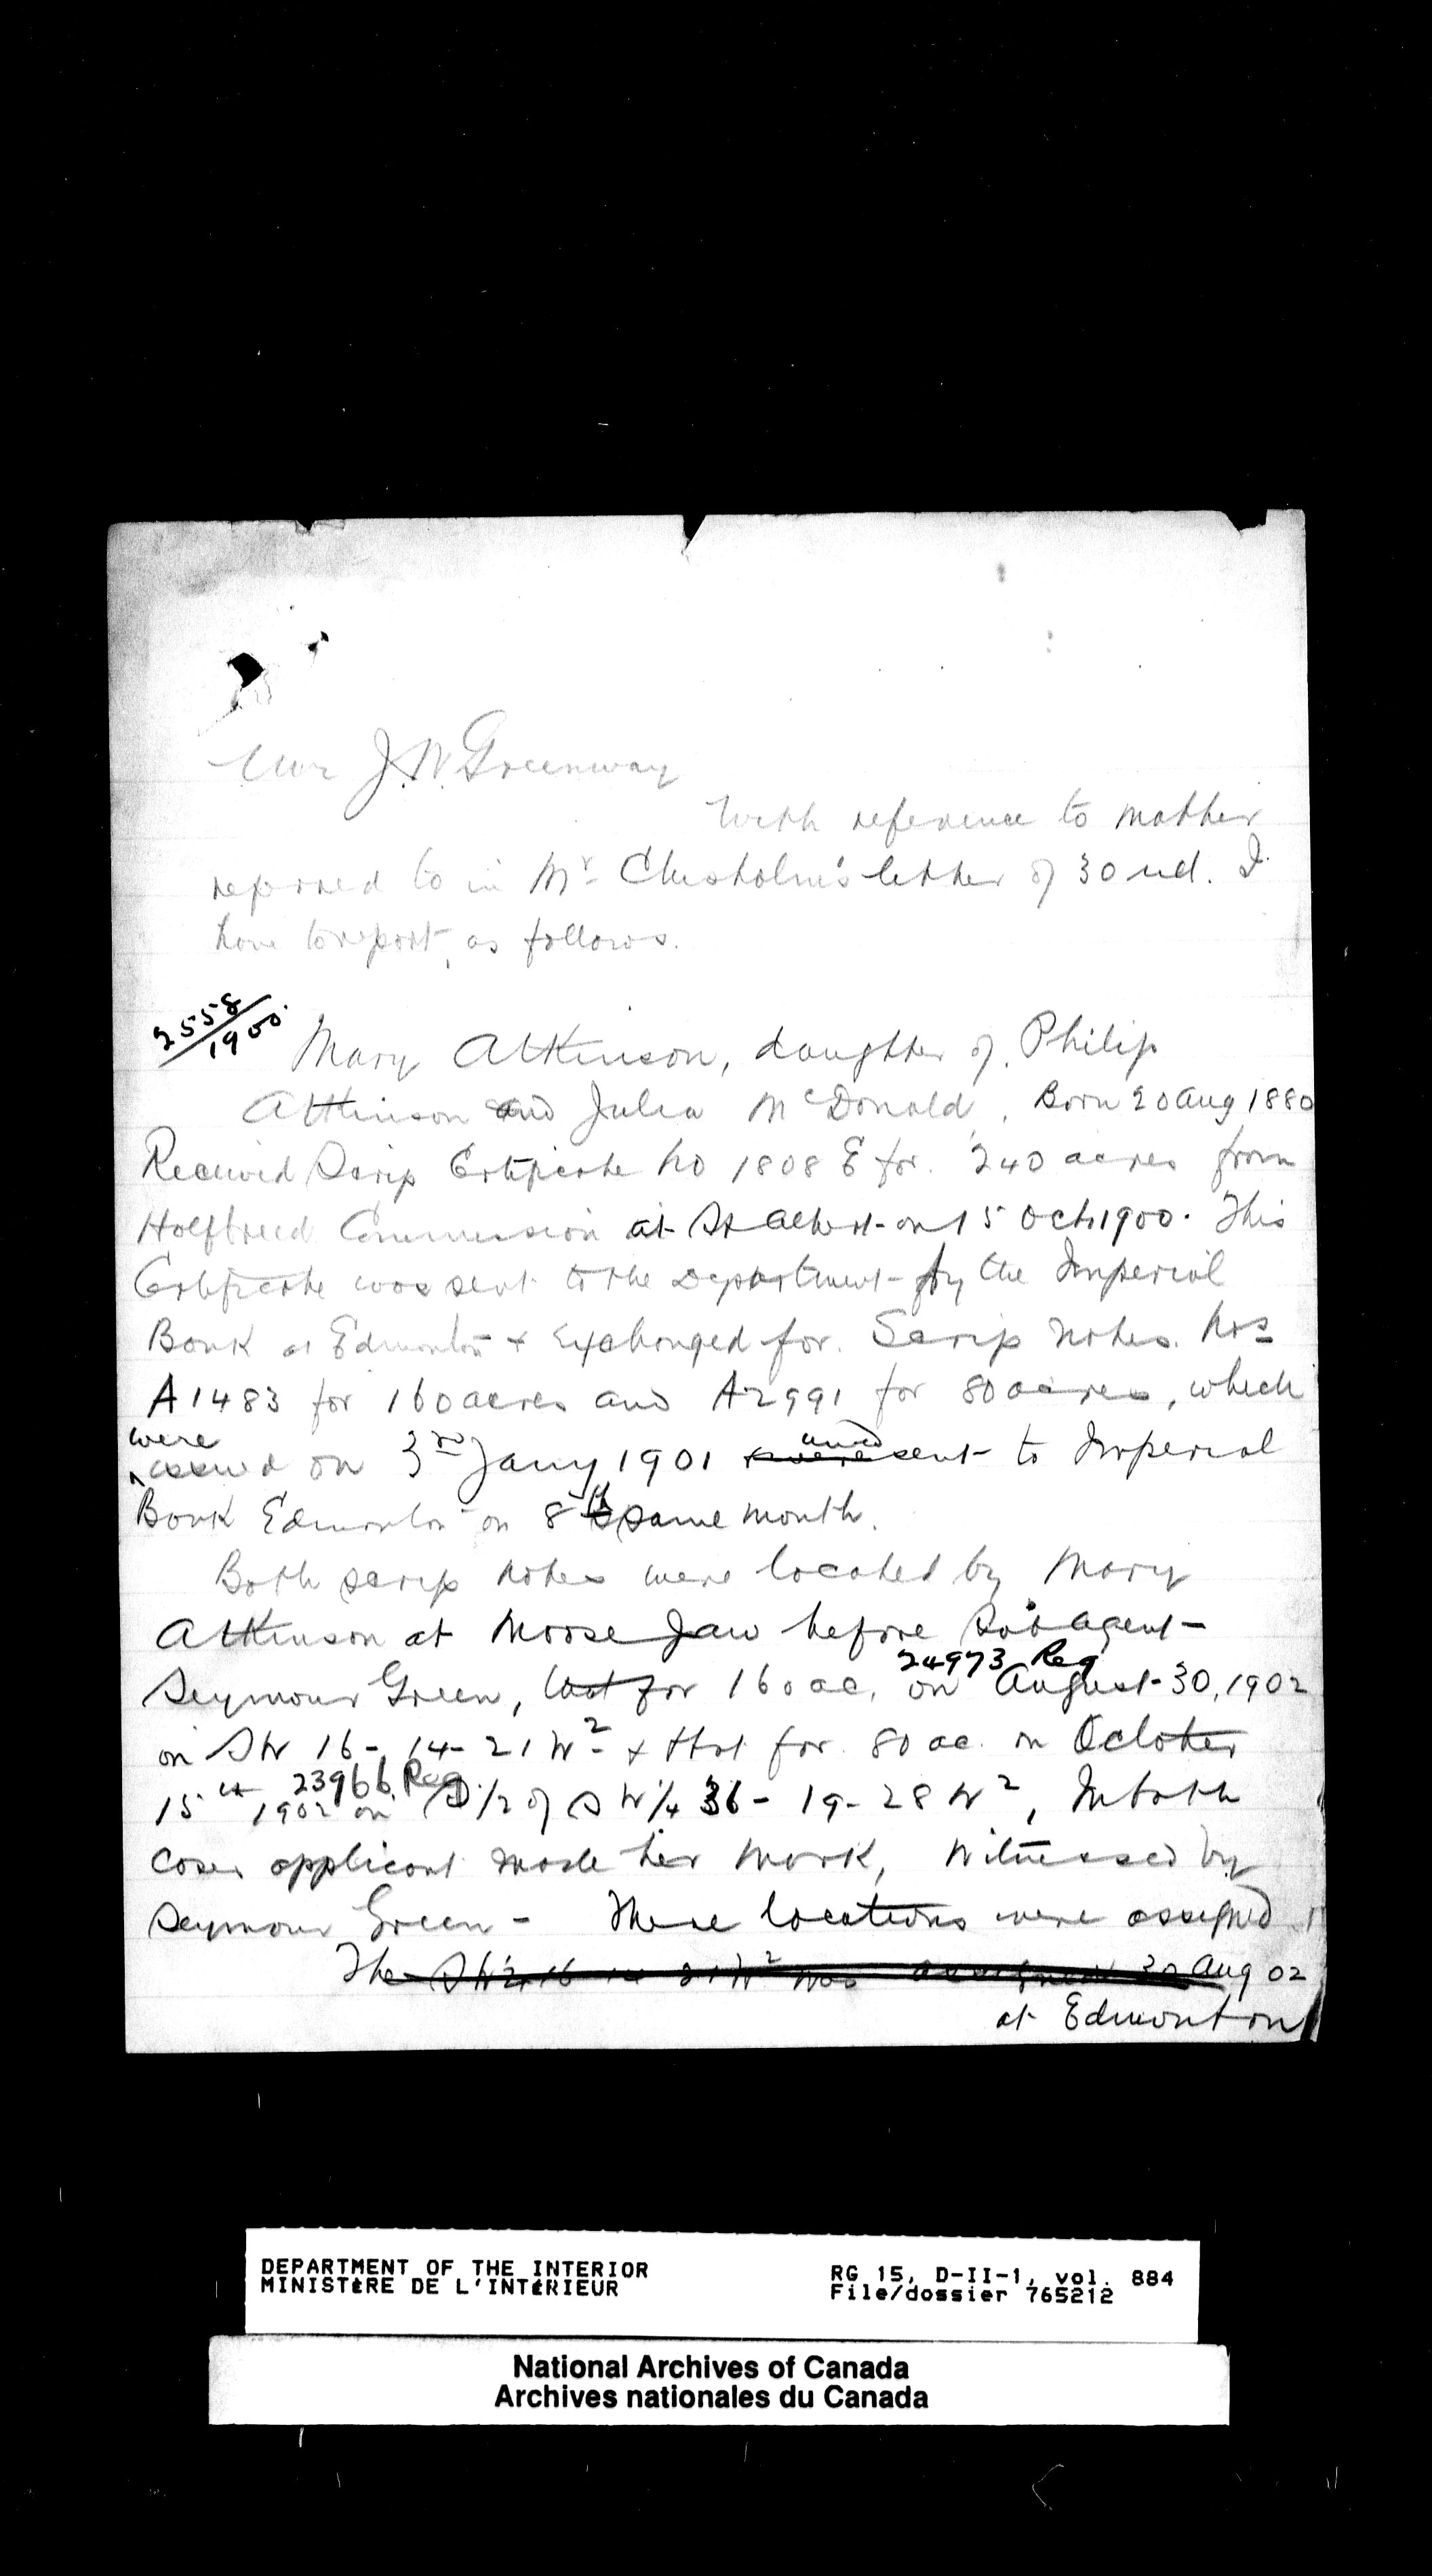 Mr J. W. Greenway
With reference to matter
referred to in Mr. Chisholm's letter of 30 ul. I
have to report, as follows.
2558/1900.
Mary Atkinson, daughter of Philip
Atkinson and Julia McDonald, Born 20 Aug 1880
Received Scrip Certificate No 1808 E for 240 acres from
Halfbreed Commission at St Albert on 15 Oct. 1900. This
Certificate was sent to the Department by the Imperial
Bank at Edmonton + Exchanged for Scrip Notes Nos
A1483 for 160 acres and A2991 for 80 acres, which
were
issued on 3rd Jany 1901 and sent to Imperial
Bank Edmonton on 8th same month.
Both scrip notes were located by Mary
Atkinson at Moose Jaw before Sub agent
24973 Reg
Seymour Green, that for 160 ac. on August 30, 1902
on SW 16-14-21 W2 + that for 80 ac. on October
23966 Reg
15th 1902 on S 1/2 of SW 1/4 36-19-28 W2, In both
cases applicant made her mark, Witnessed by
Seymour Green - These locations were assigned
The SW 1/4 16 14 21 W2 was assigned 30 Aug 02
at Edmonton
DEPARTMENT OF THE INTERIOR
MINISTÈRE DE L'INTÉRIEUR
RG 15, D-II-1, vol. 884
File/dossier 765212
National Archives of Canada
Archives nationales du Canada